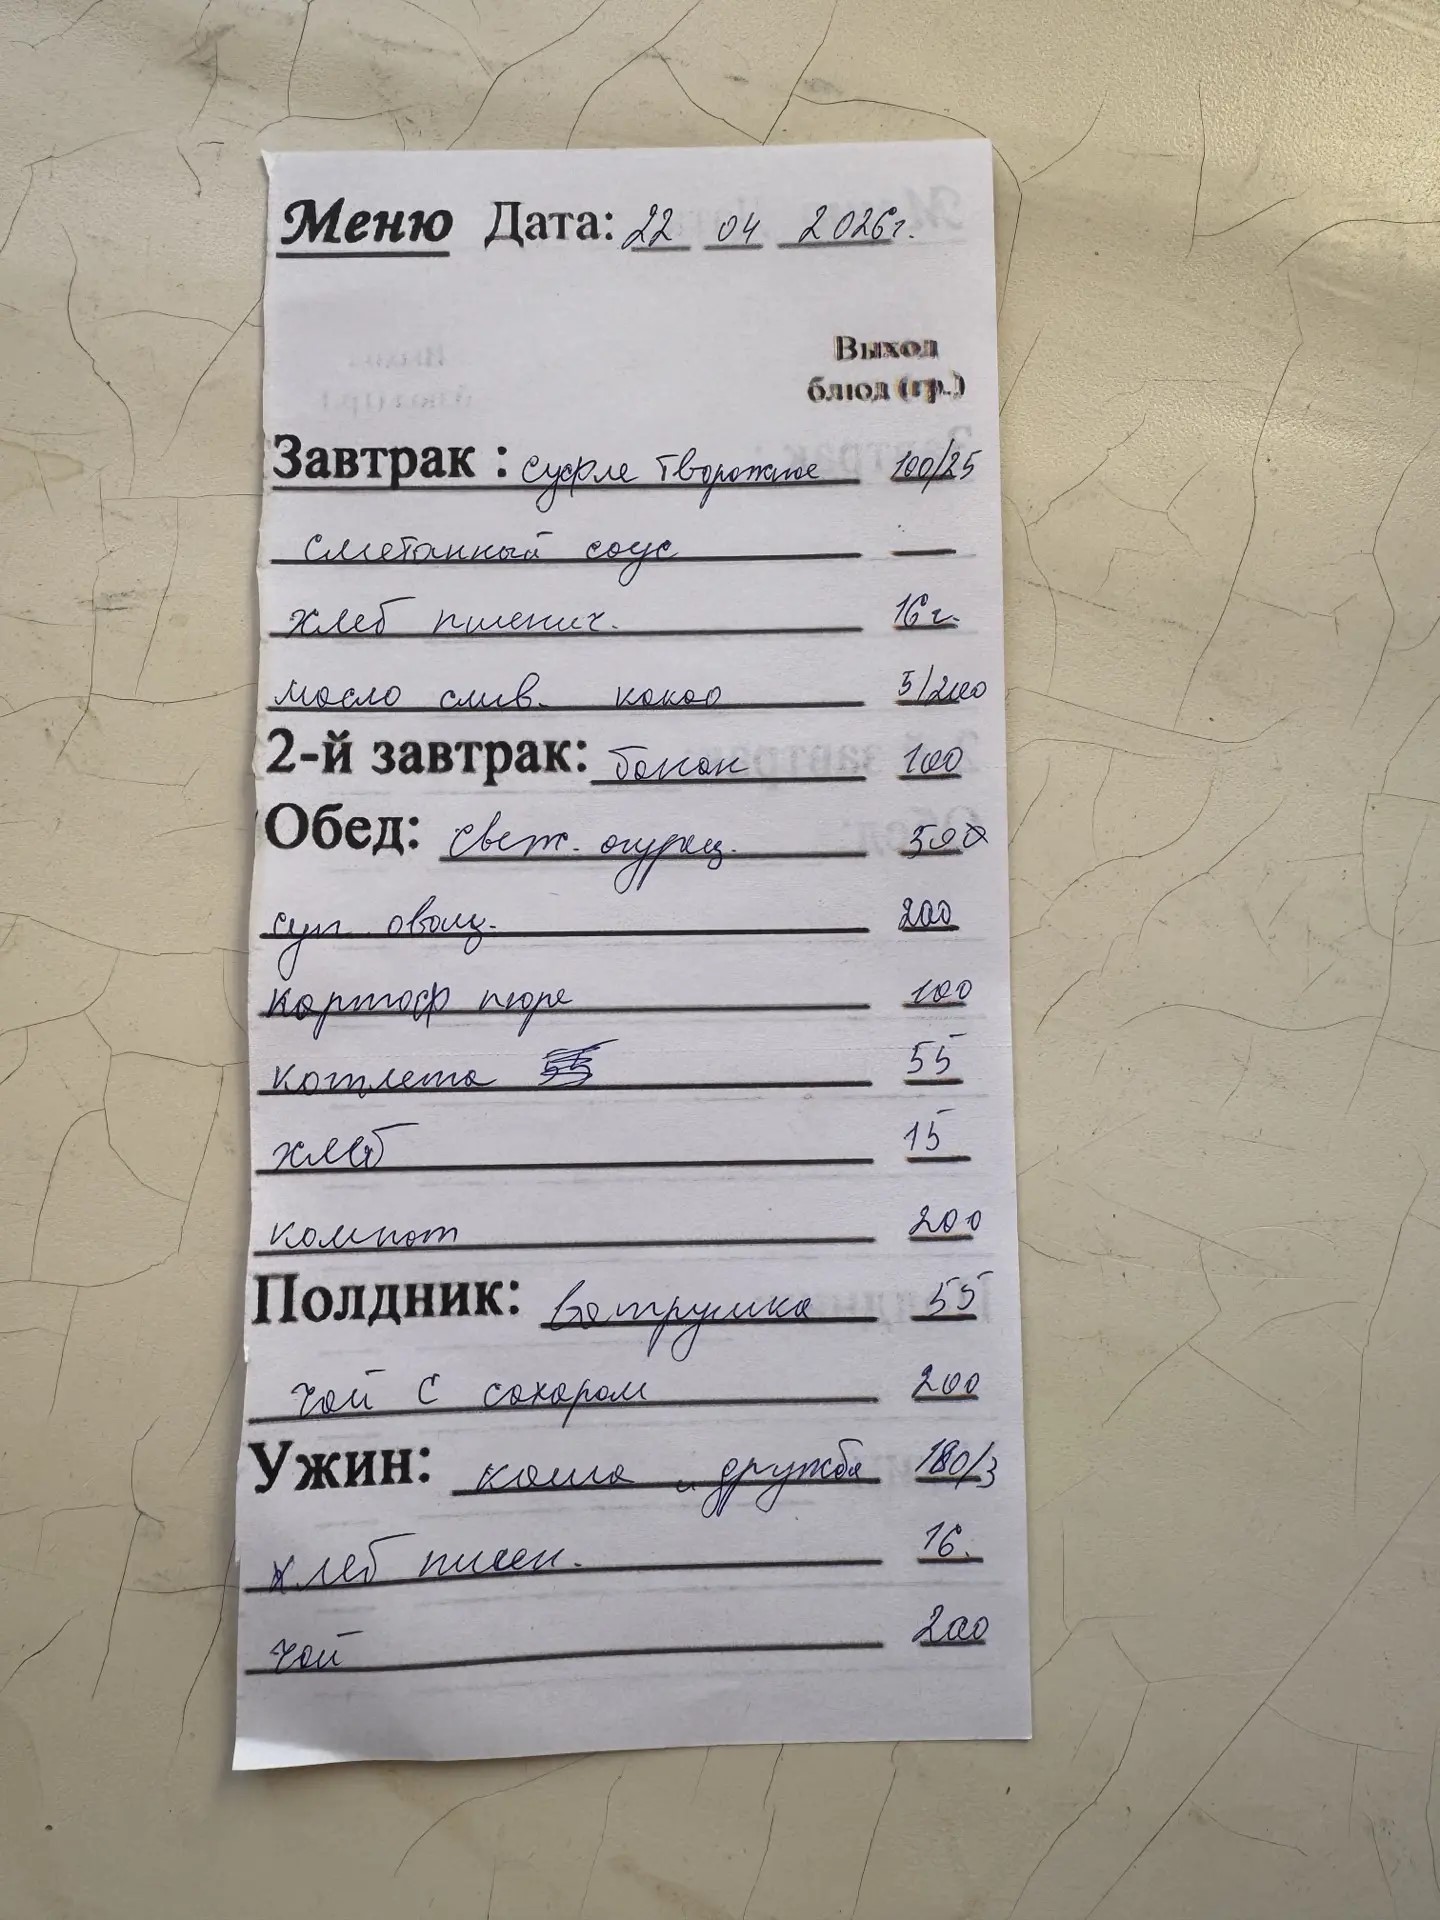 Меню Дата: 22 04 2026г.
Выход
блюд (гр.)
Завтрак : суфле творожное 100/25
сметанный соус —
хлеб пшенич. 16 г.
масло слив. какао 5/200
2-й завтрак: банан 100
Обед: свеж. огурец.
суп овощ. 200
картоф пюре 100
котлета 55
хлеб 15
компот 200
Полдник: ватрушка 55
чай с сахаром 200
Ужин: каша "дружба 180/3
хлеб пшен. 16.
чай 200